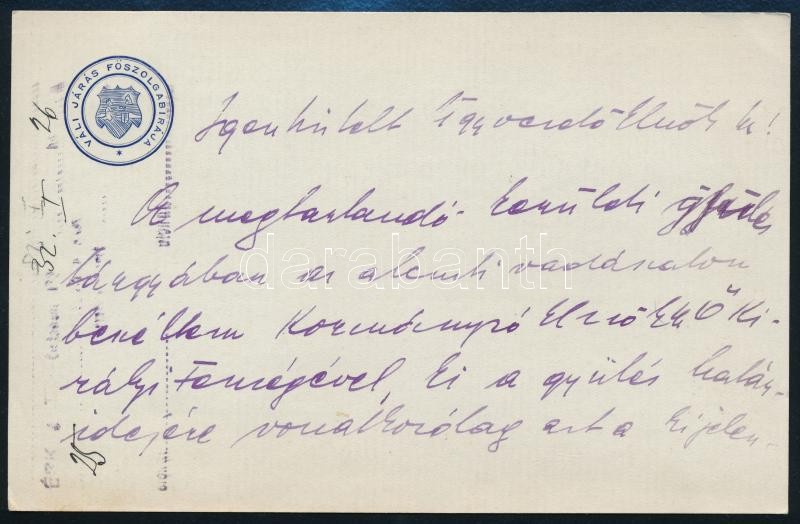 VÁLI JÁRÁS FŐSZOLGABIRÁJA
Igen tisztelt Ügyvezető Elnök úr!
A megtartandó kerületi gyűlés
tárgyában az alcsuti vadászaton
beszéltem Kormányzó Elnökkel Ő Ki-
rályi Fenségével, ki a gyűlés határ-
idejére vonatkozólag azt a kijelen-
darabanth
32. I. 26
25